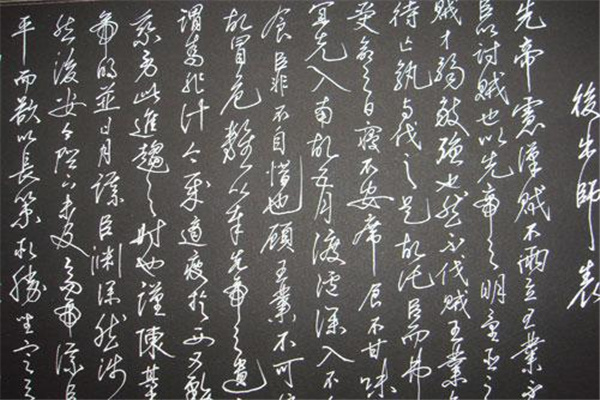 後出師表
先帝慮漢賊不兩立王業不
臣以討賊也以先帝之明量臣之
賊才弱敵強也然不伐賊王業
待亡孰与伐之是故託臣而弗
受命之日寢不安席食不甘味
宜先入南故五月渡瀘深入不
食臣非不自惜也顧王業不可
故冒危難以奉先帝之遺
謂為非計今賊適疲於西又務
乘勞此進趨之時也謹陳其
帝明並日月謀臣淵深然涉
然後安今陛下未及高帝謀臣
平而欲以長策取勝坐定天